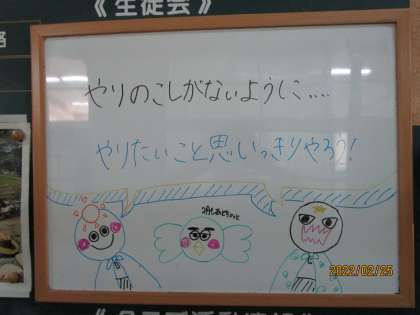 《生徒会》
やりのこしがないように....
やりたいこと思いっきりやろう!
2022/02/25